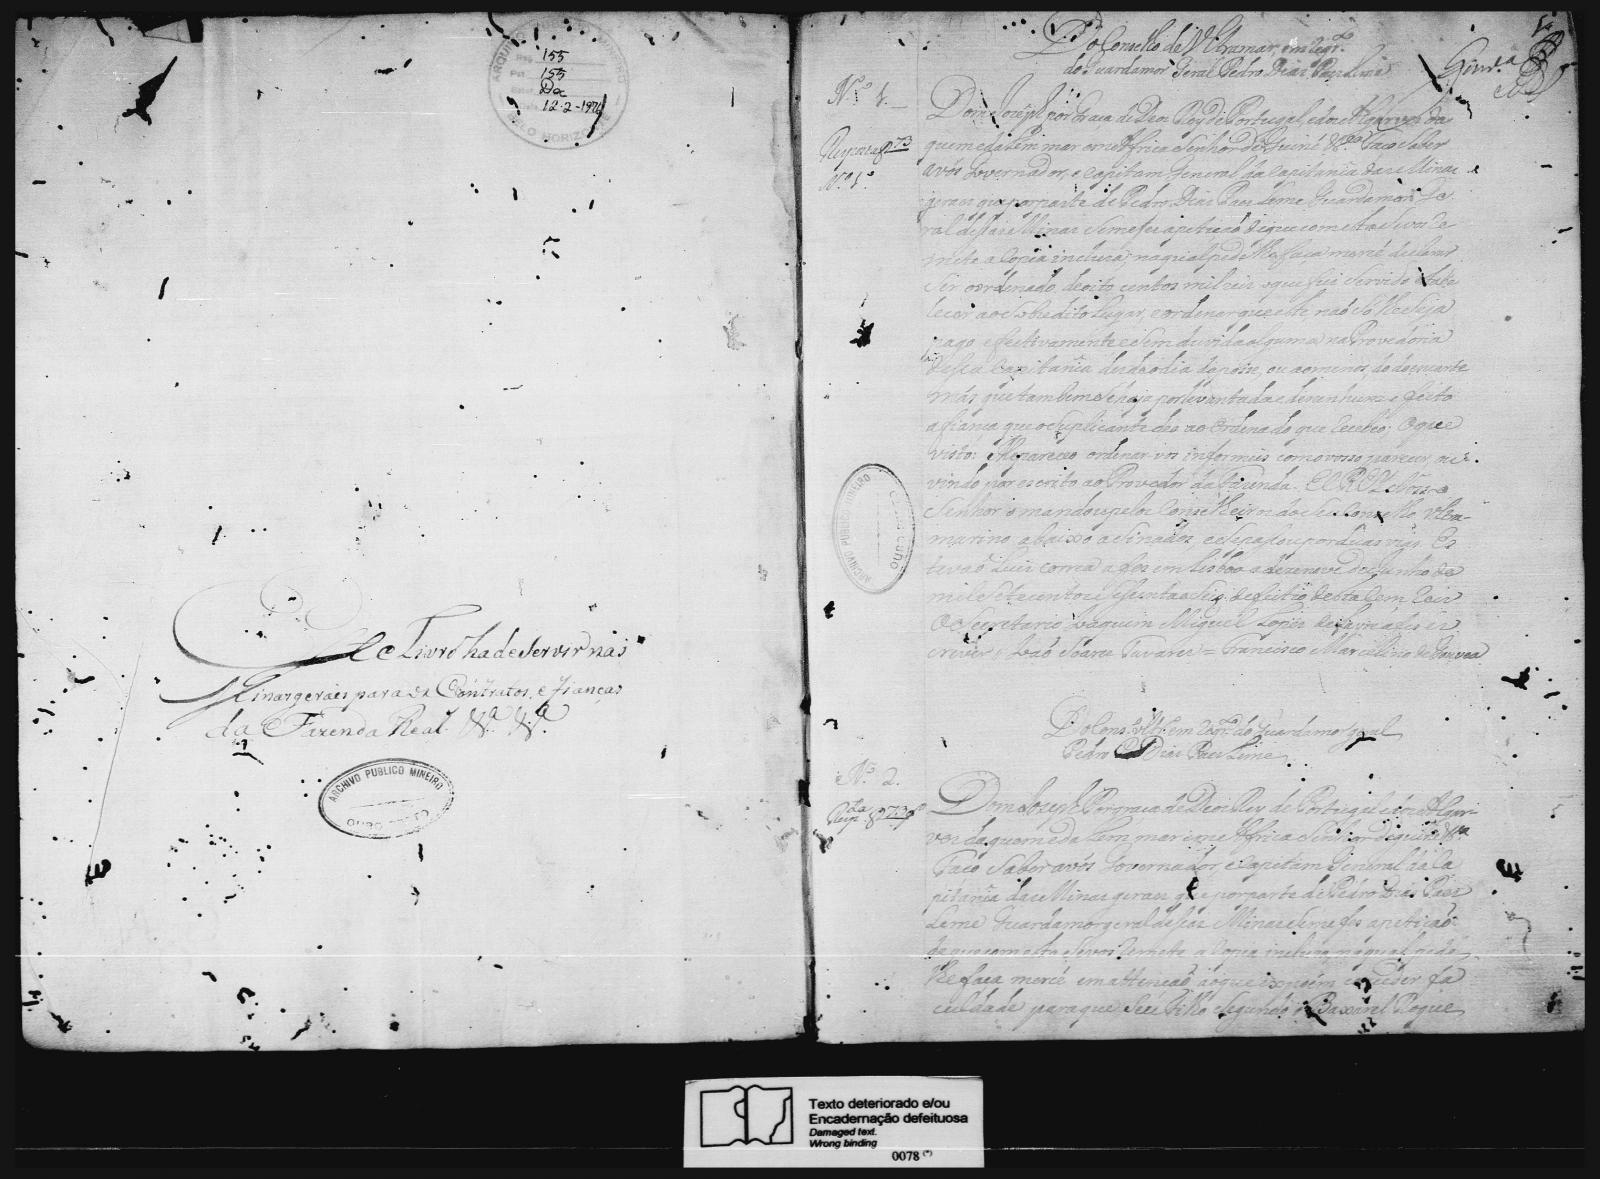 ARQUIVO PUBLICO MINEIRO
155
155
Doc
12-2-1976
BELO HORIZONTE
Este Livro ha de servir nas
Minas geraes para os Contratos, e fianças
da Fazenda Real &ª &ª
ARCHIVO PUBLICO MINEIRO
OURO PRETO
1
Do Conselho de Ultramar, em
do Guardamor Geral Pedro Dias Paes Leme
N.º 1.
Dom Joseph por Graça de Deos Rey de Portugal, e dos Algarves da
quem e dalem mar em Africa Senhor de Guiné &ª Faço saber
N.º 1.º
avós Governador, e Capitam General da Capitania das Minas
geraes que por parte de Pedro Dias Paes Leme Guardamor Ge
ral destas Minas se me fez a petição de que com esta se vos re
mete a Copia incluza, na qual pede lhe faça mercê declarar
ser o ordenado de oito centos mil reis que fui servido estabe
lecer ao sobredito Lugar, e ordenar que este não só lhe seja
pago effectivamente e sem duvida alguma na Provedoria
dessa Capitania desde o dia da posse, ou ao menos do
mas que tambem se haja por levantada e de nenhum effeito
a fiança que o suplicante deo ao Ordenado que recebeo; O que
visto: Me pareceo ordenar-vos informeis com vosso parecer, ou
vindo por escrito ao Provedor da Fazenda. El REY Nosso
Senhor o mandou pelos Conselheiros do seu Conselho Ultra-
marino abaixo asinados, e se passou por duas vias. Es
tevaõ Luis Correa a fez em Lisboa a dezenove de Junho de
mil e sete centos e sesenta e
O Secretario Joaquim Miguel Lopes de Lavre a fes es
crever. João Soares Tavares = Francisco Marcelino de Gouvea
ARCHIVO PUBLICO MINEIRO
OURO PRETO
do Guardamor geral
Pedro Dias Paes Leme
N.º 2.
Dom Joseph Por graça de Deos Rey de Portugal e dos Algar-
ves da quem e da lem mar em Africa Senhor de guiné &ª
Faço saber a vós Governador, e Capitam General da Ca
pitania das Minas geraes que por parte de Pedro Dias Paes
Leme Guardamor geral dessas Minas se me fes a petição
de que com esta se vos remete a Copia incluza, na qual pede
lhe faça mercê em attenção ao que expoem conceder fa
culdade para que seu Filho segundo o Baxarel Roque
Texto deteriorado e/ou
Encadernação defeituosa
Damaged text.
Wrong binding
0078 (*)